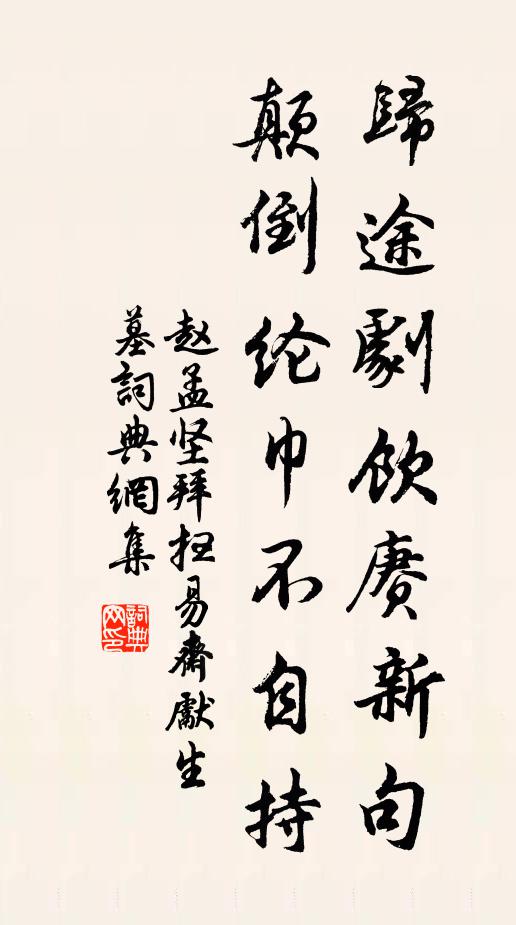 歸途劇飲賡新句
顛倒纶巾不自持
赵孟坚拜扫易齋獻生
墓詞典網集
詞典网印